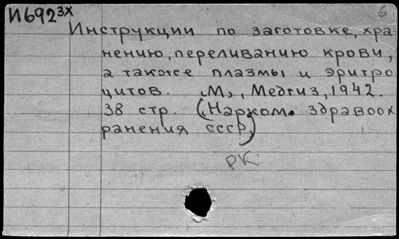 И692 ЗХ
6
Инструкции по заготовке, хра
нению, переливанию крови,
а также плазмы и эритро
цитов. М., Медгиз, 1942.
38 стр. (Нарком. здравоох
ранения СССР)
РК